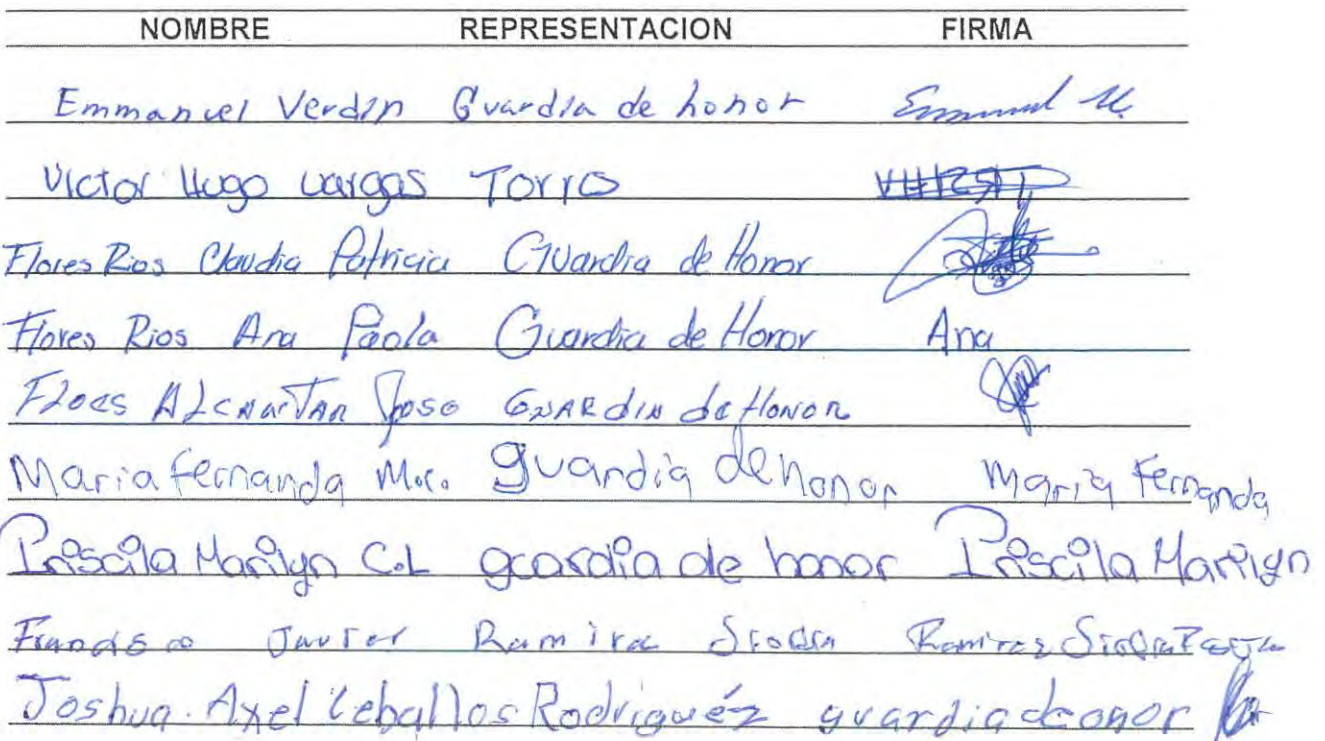 NOMBRE REPRESENTACION FIRMA
Emmanuel Verdin Guardia de honor Emmanuel V.
Victor Hugo vargas Torro
Flores Rios Claudia Patricia Guardia de Honor
Flores Rios Ana Paola Guardia de Honor Ana
Jose GUARDIA de HONOR
Maria fernanda M.C. guardia de honor Maria Fernanda
Priscila Marilyn C.L guardia de honor Priscila Marilyn
Javier Ramirez
Joshua. Axel Ceballos Rodriguéz guardia de onor